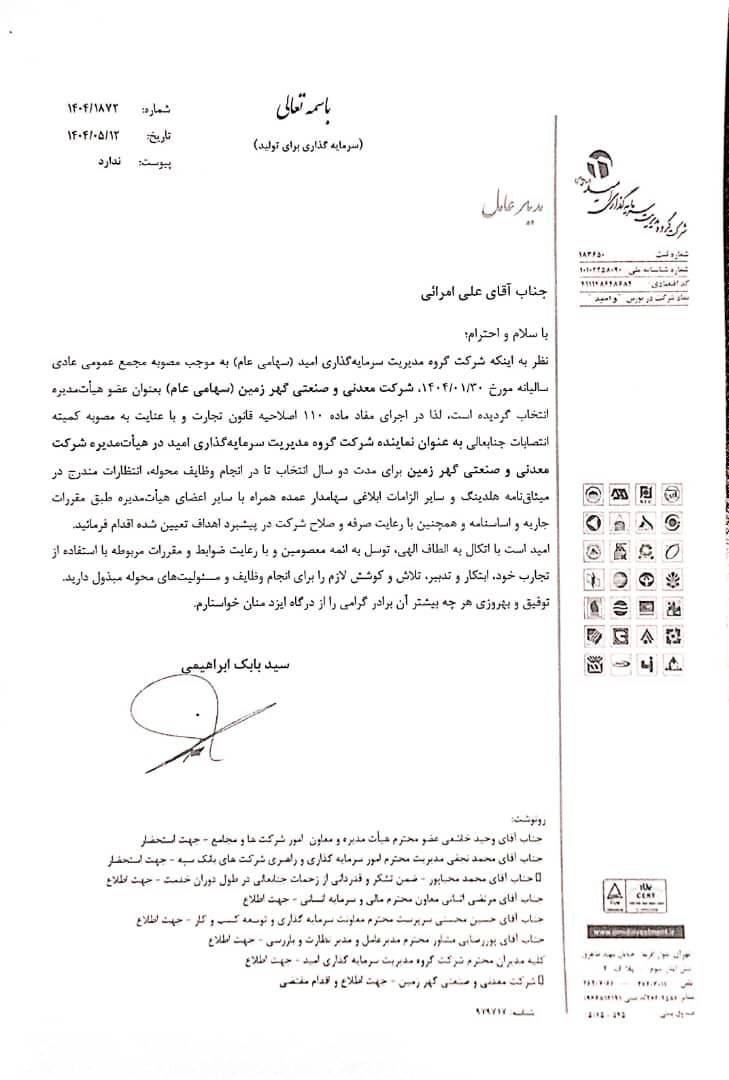 باسمه تعالی
(سرمایه گذاری برای تولید)
شماره: ۱۴۰۴/۱۸۷۲
تاریخ: ۱۴۰۴/۰۵/۱۲
پیوست: ندارد
شرکت گروه مدیریت سرمایه گذاری امید
شماره ثبت ۱۸۳۶۵۰
شماره شناسه ملی
کد اقتصادی
نماد شرکت در بورس "و امید"
مدیر عامل
جناب آقای علی امرائی
با سلام و احترام؛
نظر به اینکه شرکت گروه مدیریت سرمایه‌گذاری امید (سهامی عام) به موجب مصوبه مجمع عمومی عادی
سالیانه مورخ ۱۴۰۴/۰۱/۳۰، شرکت معدنی و صنعتی گهر زمین (سهامی عام) بعنوان عضو هیأت‌مدیره
انتخاب گردیده است، لذا در اجرای مفاد ماده ۱۱۰ اصلاحیه قانون تجارت و با عنایت به مصوبه کمیته
انتصابات جنابعالی به عنوان نماینده شرکت گروه مدیریت سرمایه‌گذاری امید در هیأت‌مدیره شرکت
معدنی و صنعتی گهر زمین برای مدت دو سال انتخاب تا در انجام وظایف محوله، انتظارات مندرج در
میثاق‌نامه هلدینگ و سایر الزامات ابلاغی سهامدار عمده همراه با سایر اعضای هیأت‌مدیره طبق مقررات
جاریه و اساسنامه و همچنین با رعایت صرفه و صلاح شرکت در پیشبرد اهداف تعیین شده اقدام فرمائید.
امید است با اتکال به الطاف الهی، توسل به ائمه معصومین و با رعایت ضوابط و مقررات مربوطه با استفاده از
تجارب خود، ابتکار و تدبیر، تلاش و کوشش لازم را برای انجام وظایف و مسئولیت‌های محوله مبذول دارید.
توفیق و بهروزی هر چه بیشتر آن برادر گرامی را از درگاه ایزد منان خواستارم.
سید بابک ابراهیمی
رونوشت:
جناب آقای وحید خاشعی عضو محترم هیأت مدیره و معاون امور شرکت ها و مجامع - جهت استحضار
جناب آقای محمد نجفی مدیریت محترم امور سرمایه گذاری و راهبری شرکت های بانک سپه - جهت استحضار
جناب آقای محمد محیاپور - ضمن تشکر و قدردانی از زحمات جنابعالی در طول دوران خدمت - جهت اطلاع
جناب آقای مرتضی معاون محترم مالی و سرمایه انسانی - جهت اطلاع
جناب آقای حسین محسنی سرپرست محترم معاونت سرمایه گذاری و توسعه کسب و کار - جهت اطلاع
جناب آقای پوررضایی مشاور محترم مدیرعامل و مدیر نظارت و بازرسی - جهت اطلاع
کلیه مدیران محترم شرکت گروه مدیریت سرمایه گذاری امید - جهت اطلاع
شرکت معدنی و صنعتی گهر زمین - جهت اطلاع و اقدام مقتضی
شناسه: ۹۷۹۷۱۷
TÜV
CERT
www.omidinvestment.ir